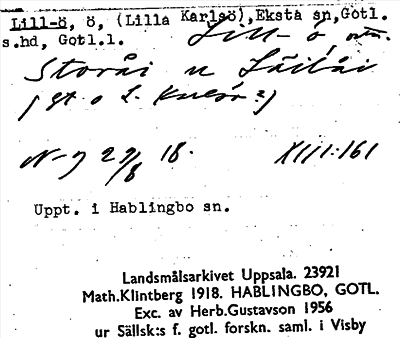 Lill-ö, ö, (Lilla Karlsö), Eksta sn, Gotl.
s.hd, Gotl.l. Lill-ö
Storåi
27/8 18. XIII:161
Uppt. i Hablingbo sn.
Landsmålsarkivet Uppsala. 23921
Math.Klintberg 1918. HABLINGBO, GOTL.
Exc. av Herb.Gustavson 1956
ur Sällsk:s f. gotl. forskn. saml. i Visby